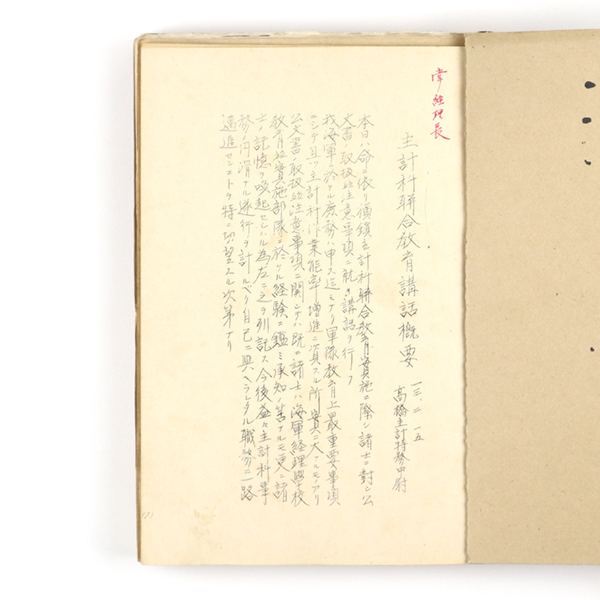 常経理長
主計科聯合教育講話概要
一三、二、一五
高橋主計特務中尉
本日ハ命ニ依リ横鎮主計科聯合教育実施ニ際シ諸士ニ対シ公
文書ノ取扱並注意事項ニ就キ講話ヲ行フ
我海軍ニ於ケル庶務ハ申ス迄モナク軍隊教育上最重要事項
ニシテ且ツ主計科作業能率ノ増進ニ資スル所実ニ大ナルモノアリ
公文書ノ取扱並注意事項ニ関シテハ既ニ諸士ハ海軍経理学校
教育並実施部隊ニ於ケル経験ニ鑑ミ承知ノ筈ナルモ更ニ諸
士ノ記憶ヲ喚起セシムル為左ニ之ヲ列記ス今後益々主計科事
務ノ円滑ナル遂行ヲ計ルベク自己ニ与ヘラレタル職務ニ一路
邁進センコトヲ特ニ切望スル次第ナリ